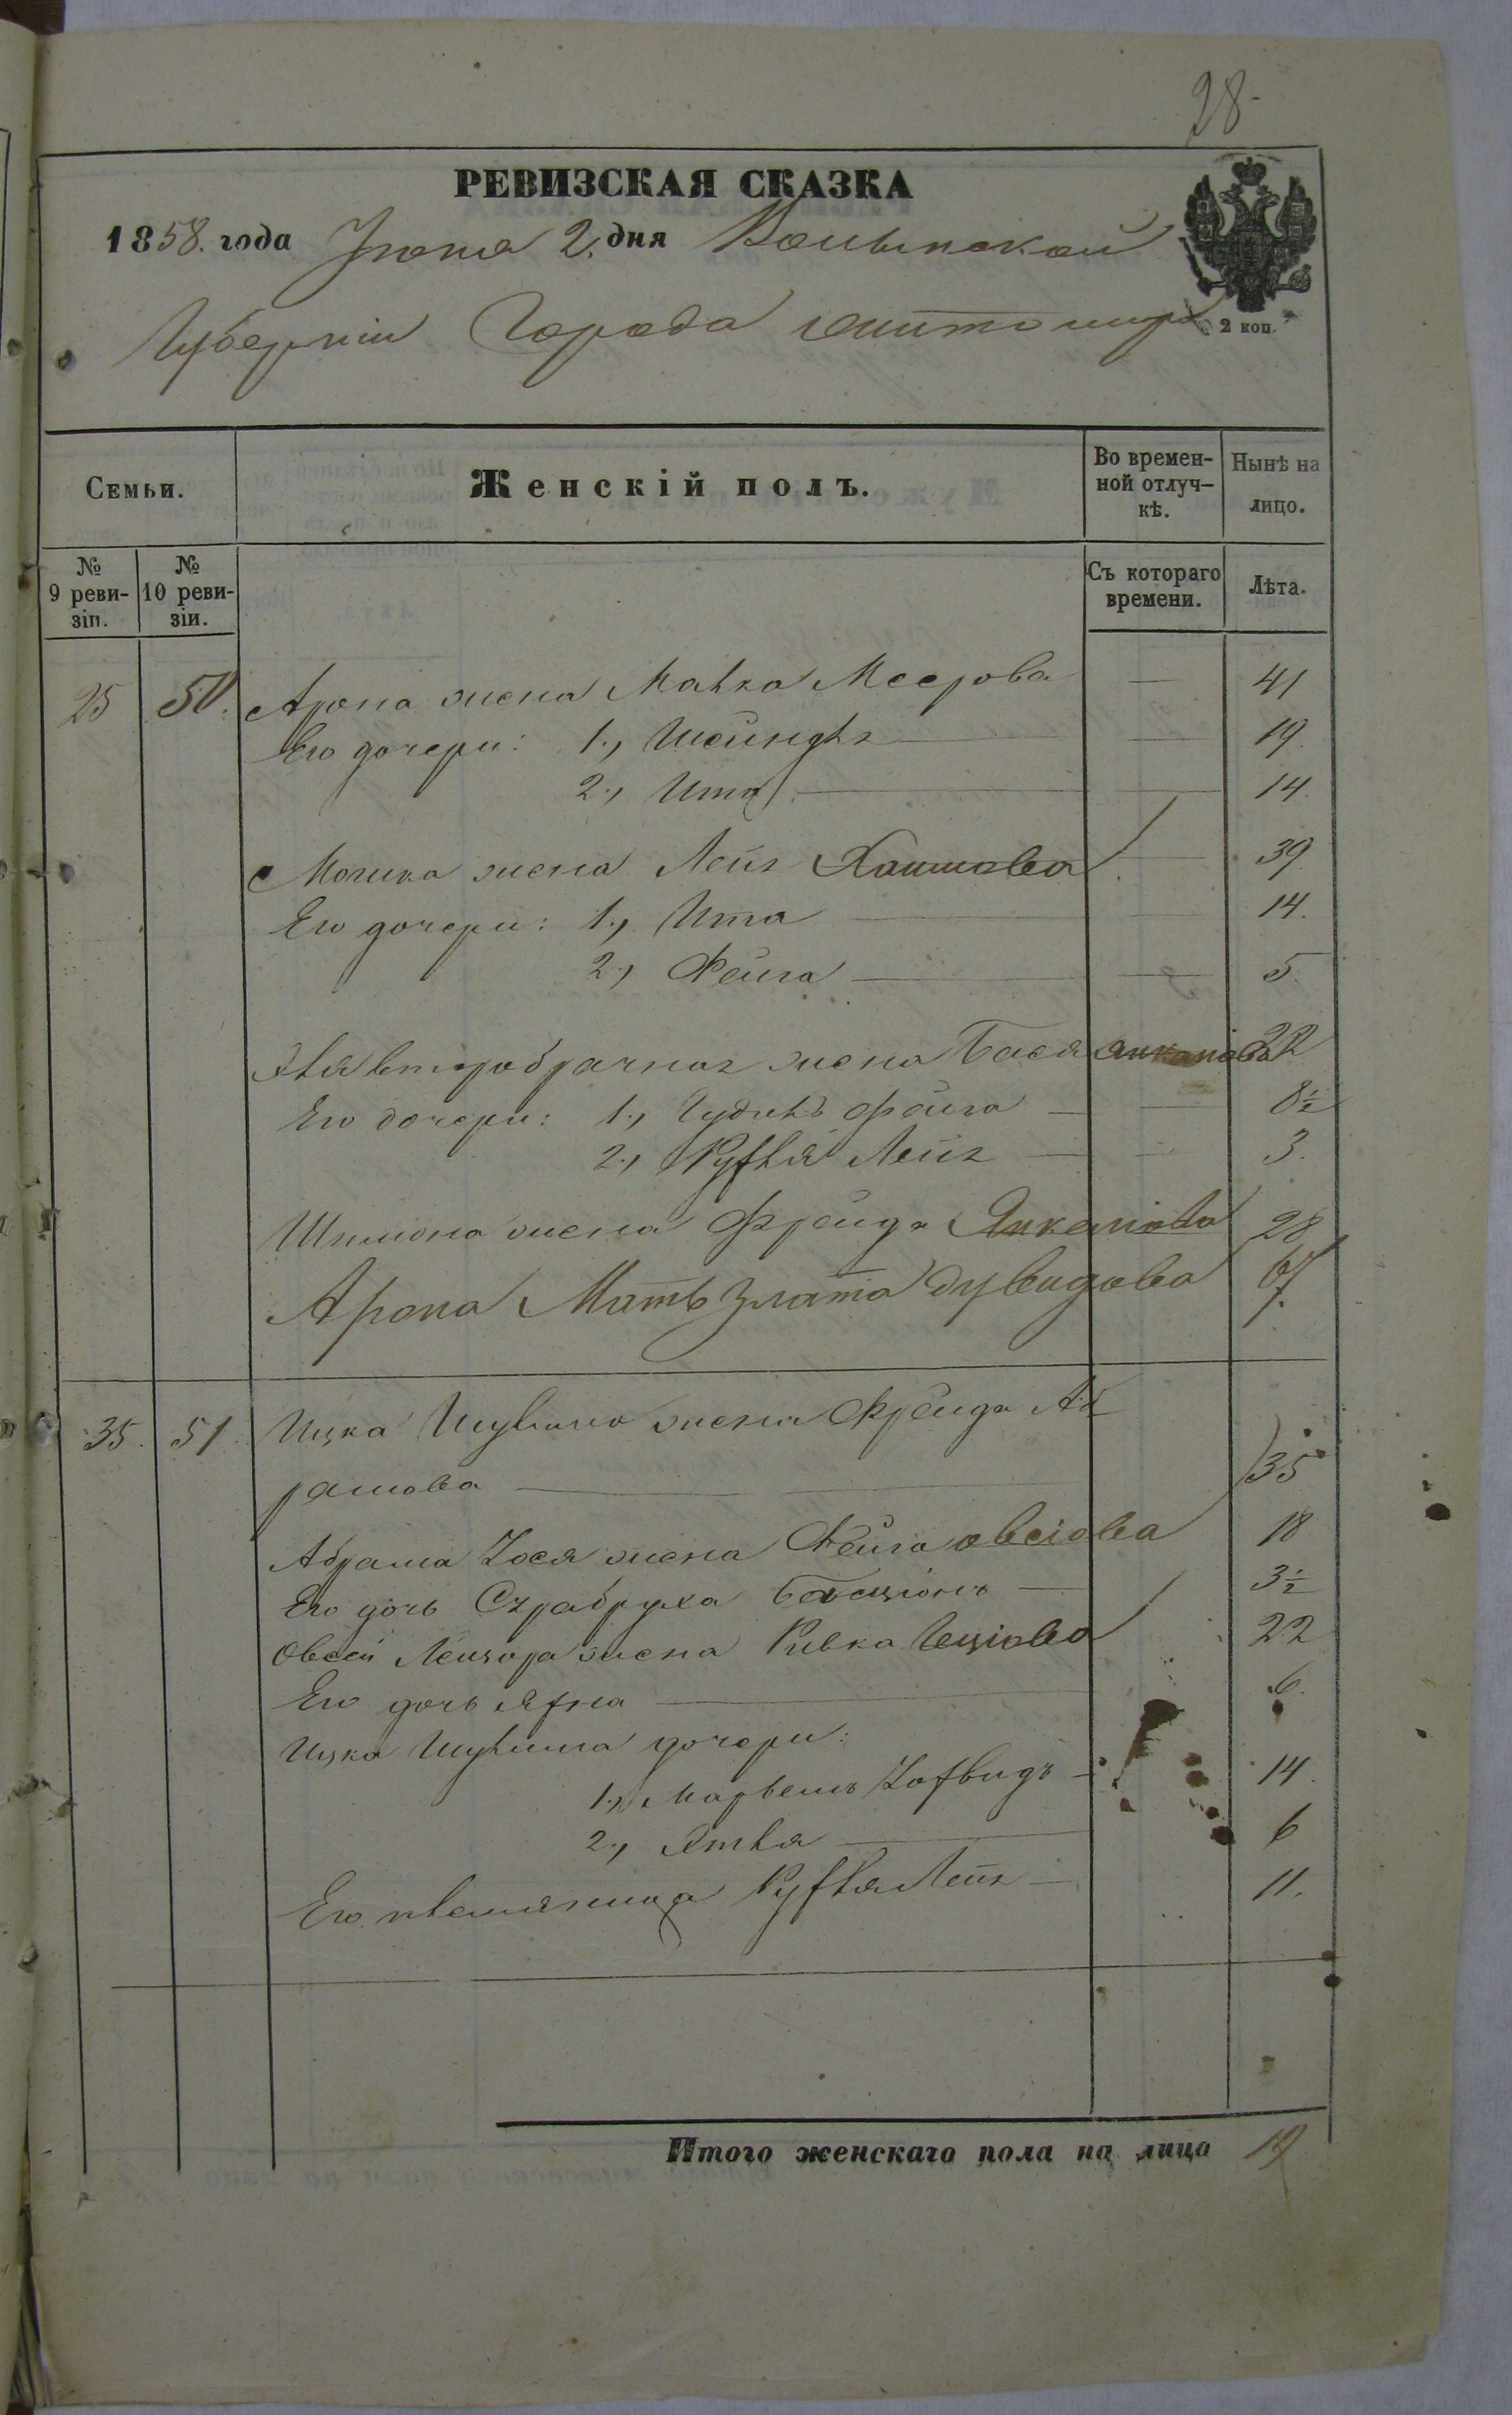 28
РЕВИЗСКАЯ СКАЗКА
1858. года Іюня 2. дня Волынской
Губерніи Города Житомира
2 коп.
Семьи.
Женскій полъ.
Во времен-
ной отлуч-
кѣ.
Нынѣ на
лицо.
№
9 реви-
зіи.
№
10 реви-
зіи.
Съ котораго
времени.
Лѣта.
25 50. Арона жена Малка Меерова — 41
Его дочери: 1., Шейндля — 19.
2., Ита — 14.
Мошка жена Лея Хаимова 39.
Его дочери: 1., Ита 14.
2., Фейга — 5.
второбрачная жена Бася Янкелiова 22
Его дочери: 1., Фейга — 8½
2., Рухля Лея — 3.
Шимона жена Фрейда Янкелiова 28
Арона Мать Злата Дувидова 67.
35. 51 Ицка жена Фрейда Аб
рамова — 35
Абрама Іося жена Фейга Овсіова 18
Его дочь Басшіонъ — 3½
Овсей Лейзора жена Ривка 22
Его дочь — 6.
Ицка дочери:
1., 14.
2., Этля — 6
Его племянница Рухля Лея — 11.
Итого женскаго пола на лицо 19